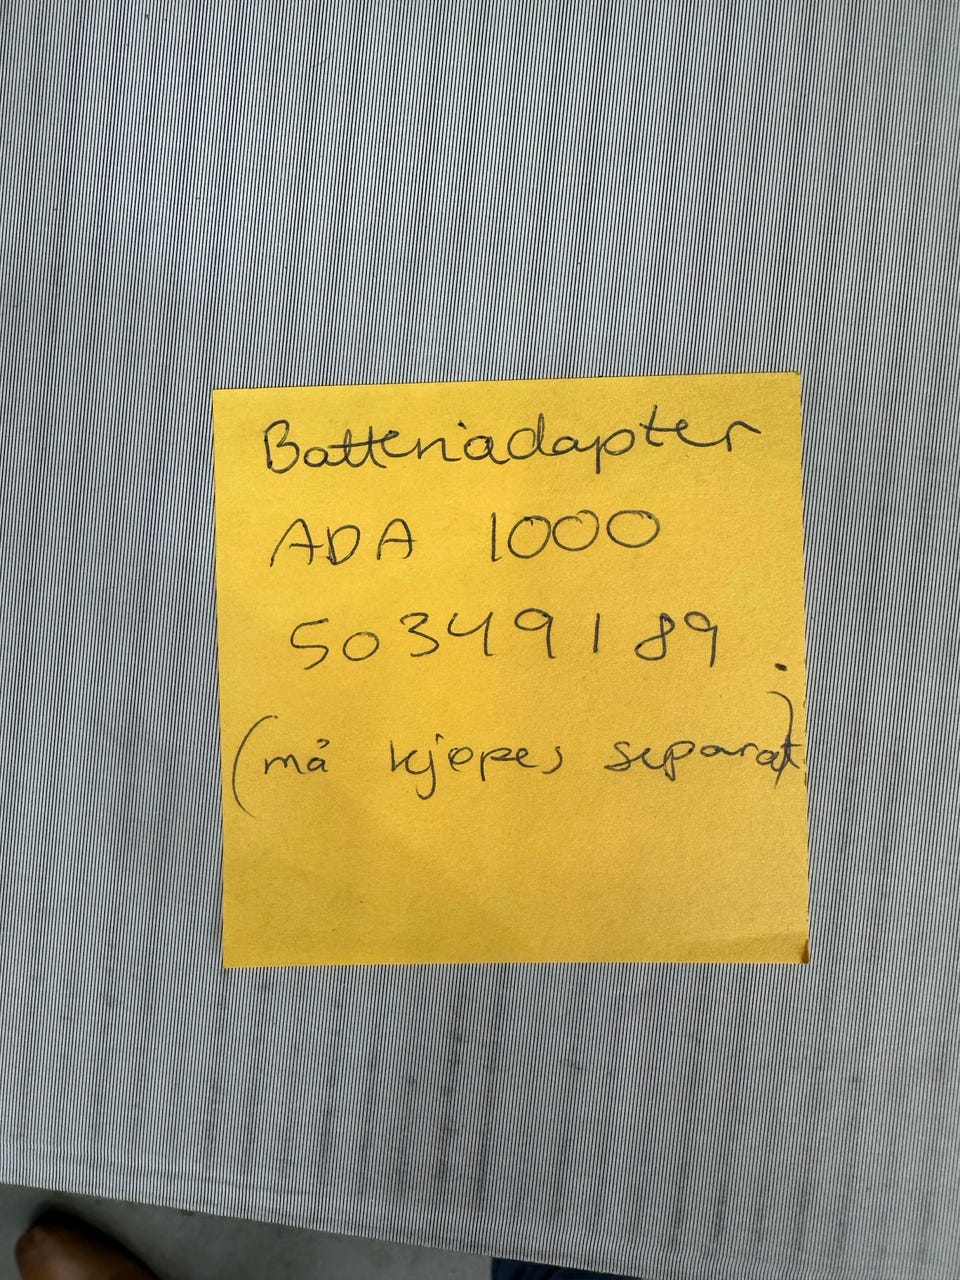 Batteriadapter
ADA 1000
50349189.
(må kjøpes separat)